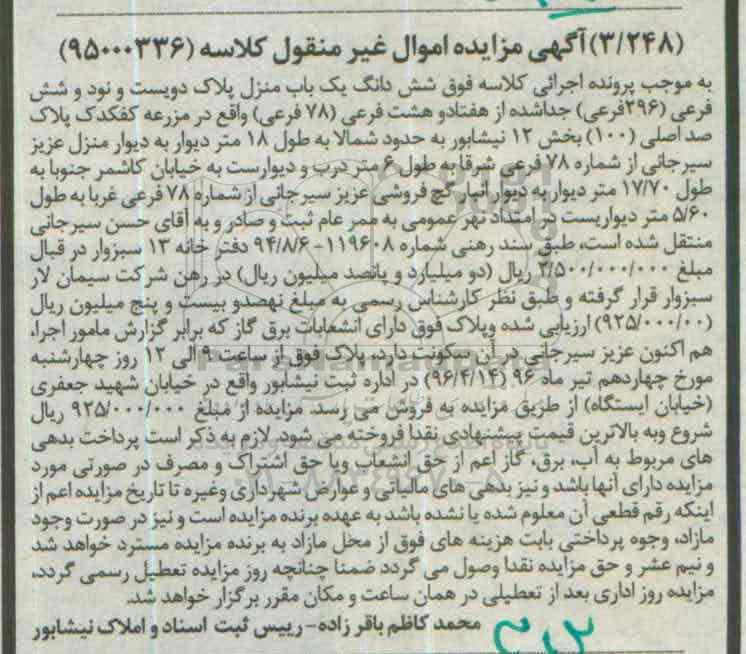 (۳/۲۴۸) آگهی مزایده اموال غیر منقول کلاسه (۹۵۰۰۰۳۳۶)
به موجب پرونده اجرائی کلاسه فوق شش دانگ یک باب منزل پلاک دویست و نود و شش
فرعی (۲۹۶فرعی) جداشده از هفتادو هشت فرعی (۷۸ فرعی) واقع در مزرعه کفکدک پلاک
صد اصلی (۱۰۰) بخش ۱۲ نیشابور به حدود شمالا به طول ۱۸ متر دیوار به دیوار منزل عزیز
سیرجانی از شماره ۷۸ فرعی شرقا به طول ۶ متر درب و دیوارست به خیابان کاشمر جنوبا به
طول ۱۷/۷۰ متر دیوار به دیوار انبار گچ فروشی عزیز سیرجانی از شماره ۷۸ فرعی غربا به طول
۵/۶۰ متر دیواریست در امتداد نهر عمومی به ممر عام ثبت و صادر و به آقای حسن سیرجانی
منتقل شده است، طبق سند رهنی شماره ۱۱۹۶۰۸-۹۴/۸/۶ دفتر خانه ۱۳ سبزوار در قبال
مبلغ ۲/۵۰۰/۰۰۰/۰۰۰ ریال (دو میلیارد و پانصد میلیون ریال) در رهن شرکت سیمان لار
سبزوار قرار گرفته و طبق نظر کارشناس رسمی به مبلغ نهصدو بیست و پنج میلیون ریال
(۹۲۵/۰۰۰/۰۰) ارزیابی شده وپلاک فوق دارای انشعابات برق گاز که برابر گزارش مامور اجرا،
هم اکنون عزیز سیرجانی در آن سکونت دارد، پلاک فوق از ساعت ۹ الی ۱۲ روز چهارشنبه
مورخ چهاردهم تیر ماه ۹۶ (۹۶/۴/۱۴) در اداره ثبت نیشابور واقع در خیابان شهید جعفری
(خیابان ایستگاه) از طریق مزایده به فروش می رسد. مزایده از مبلغ ۹۲۵/۰۰۰/۰۰۰ ریال
شروع وبه بالاترین قیمت پیشنهادی نقدا فروخته می شود. لازم به ذکر است پرداخت بدهی
های مربوط به آب، برق، گاز اعم از حق انشعاب ویا حق اشتراک و مصرف در صورتی مورد
مزایده دارای آنها باشد و نیز بدهی های مالیاتی و عوارض شهرداری وغیره تا تاریخ مزایده اعم از
اینکه رقم قطعی آن معلوم شده یا نشده باشد به عهده برنده مزایده است و نیز در صورت وجود
مازاد، وجوه پرداختی بابت هزینه های فوق از محل مازاد به برنده مزایده مسترد خواهد شد
و نیم عشر و حق مزایده نقدا وصول می گردد ضمنا چنانچه روز مزایده تعطیل رسمی گردد،
مزایده روز اداری بعد از تعطیلی در همان ساعت و مکان مقرر برگزار خواهد شد.
محمد کاظم باقر زاده- رییس ثبت اسناد و املاک نیشابور